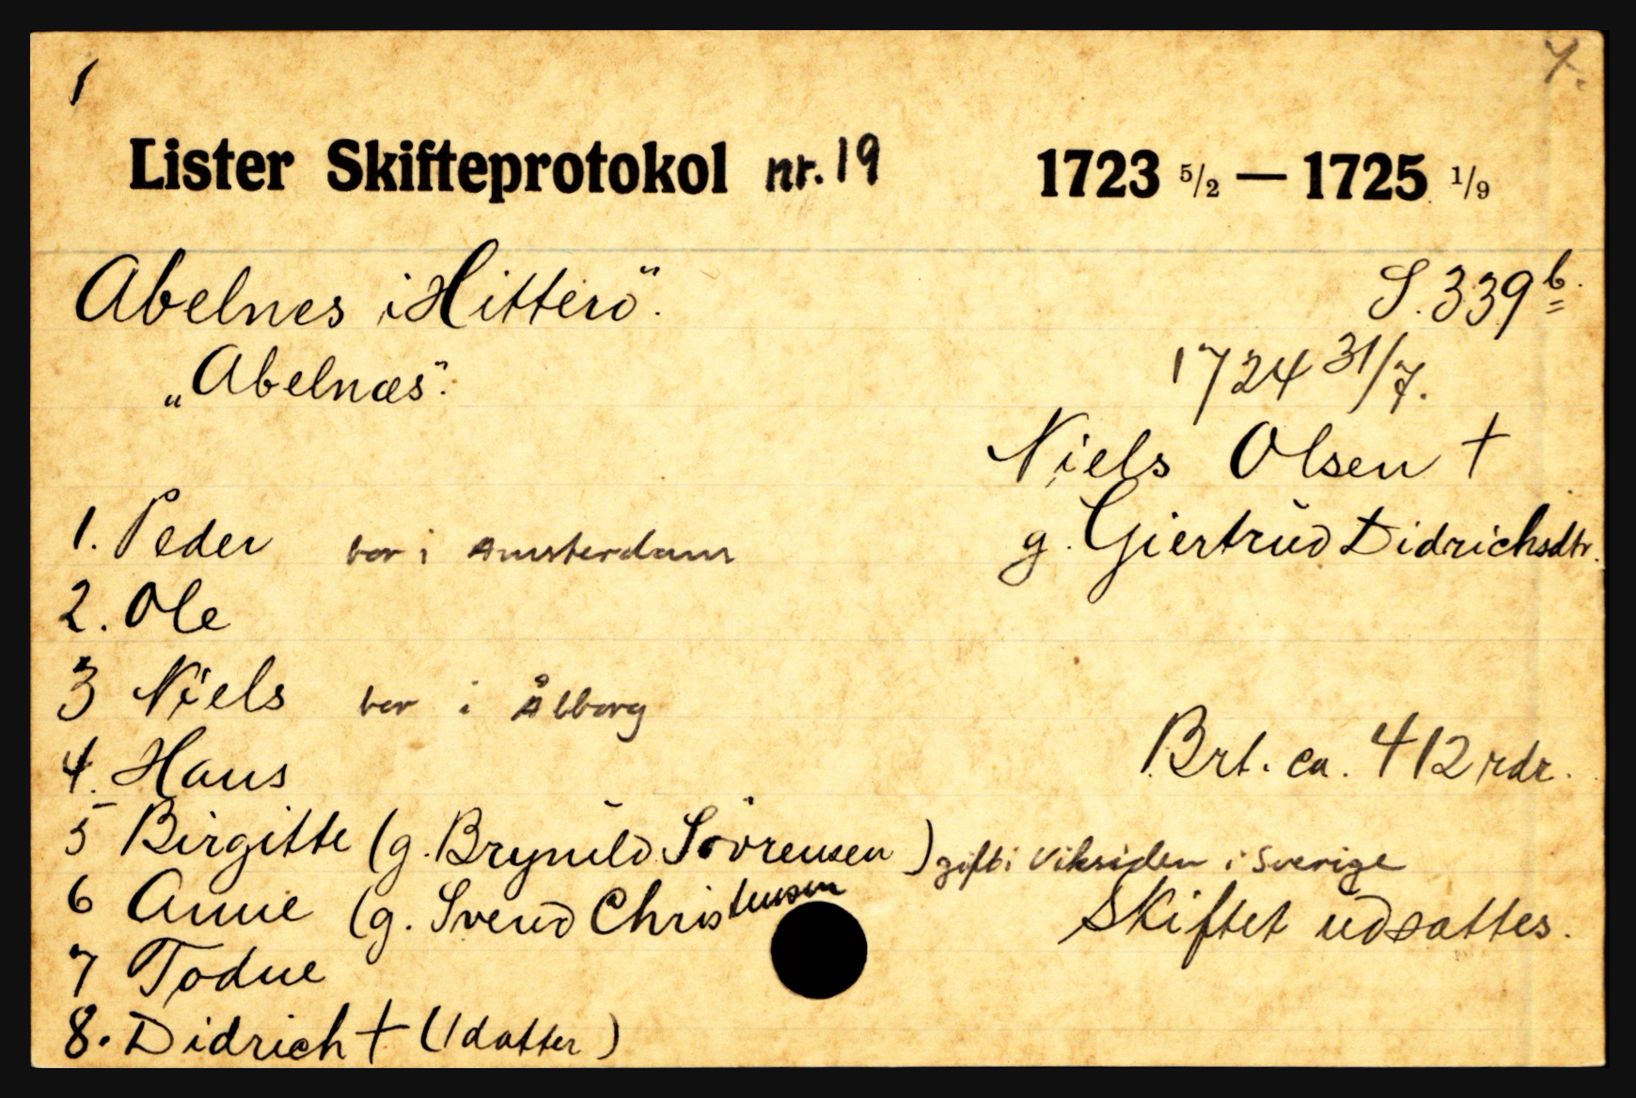 1
Lister Skifteprotokol nr. 19 1723 5/2 — 1725 1/9
Abelnes i Hitterö". S. 339 b
„Abelnæs". 1724 31/7.
Niels Olsen †
g. Giertrud Didrichsdtr.
1. Peder bor i Amsterdam
2. Ole
3 Niels bor i Ålborg
4. Hans Brt. ca. 412 rdr.
5 Birgitte (g. Brynild Sörensen) gift i Viksiden i Sverige
6 Anne (g. Svend Christensen Skiftet udsattes.
7 Todne
8. Didrich † (1 datter)